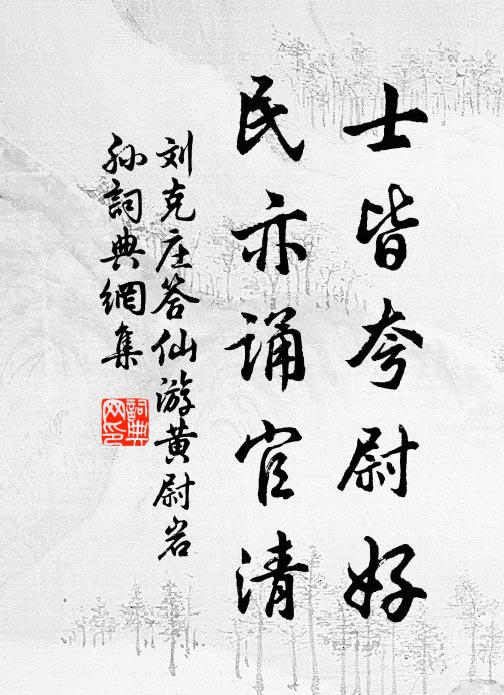 士皆夸尉好
民亦诵官清
刘克庄答仙游黄尉岩
孙詞典網集
詞典网印